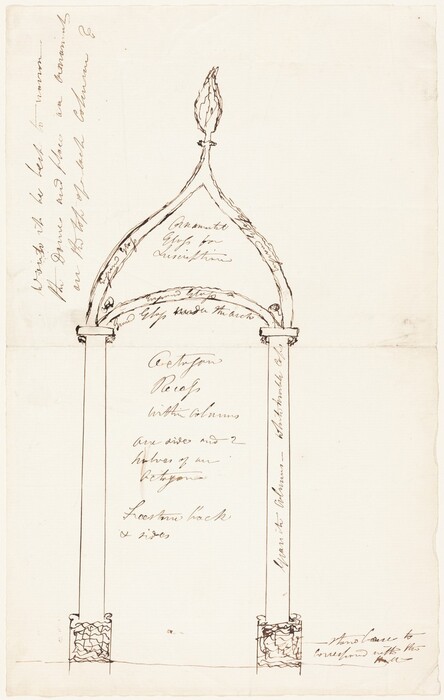 Would it be best to narrow
the Domes and place an ornament
on the top of each Column ?
Glass for
Inscription
Glass
Glass under the arch
Octagon
Recess
with Columns
sides and 2
halves of an
Octagon
Freestone back
& sides
Granite Columns — White marble Caps
stone base to
correspond with the